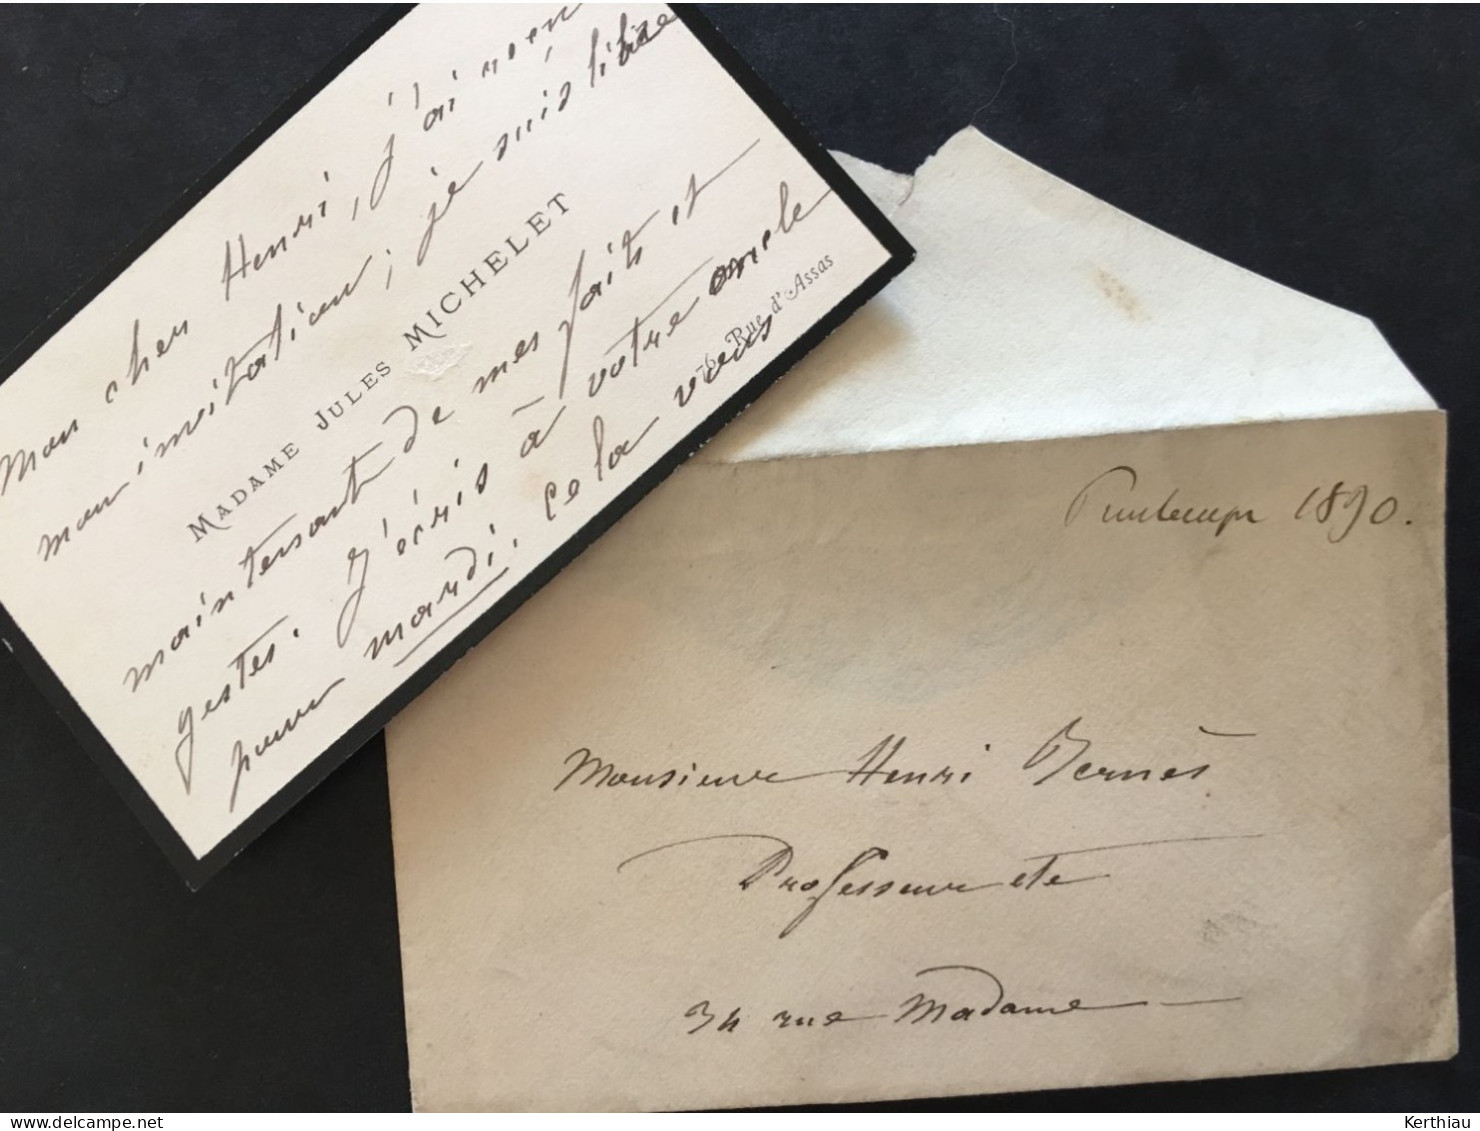 Mon cher Henri, j'ai reçu
mon invitation; je suis libre
MADAME JULES MICHELET
maintenant de mes faits et
gestes. J'écris à votre oncle
76, Rue d'Assas
pour mardi. Cela vous
Printemps 1890.
Monsieur Henri Bernès
Professeur etc
34 rue Madame
Kerthiau